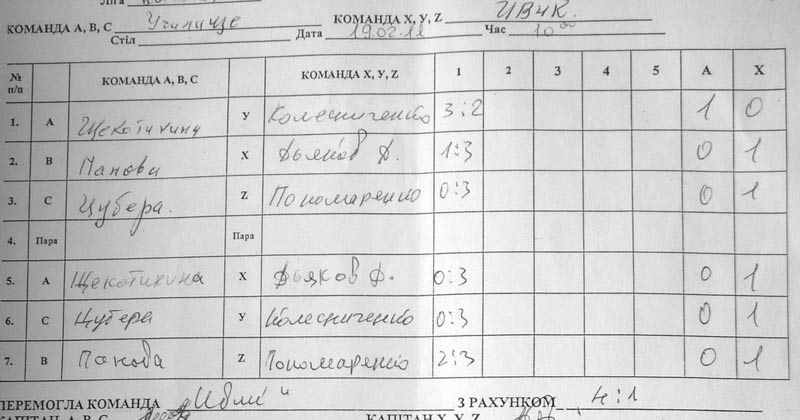 Ліга
КОМАНДА А, В, С Училище КОМАНДА Х, У, Z
Стіл Дата Час 10 00
№ п/п КОМАНДА А, В, С КОМАНДА Х, У, Z 1 2 3 4 5 А Х
1. А У Колесниченко 3:2 1 0
2. В Х Дьяков Д. 1:3 0 1
3. С Цубера. Z Пономаренко 0:3 0 1
4. Пара Пара
5. А Щекотихина Х Дьяков Д. 0:3 0 1
6. С Цубера У Колесниченко 0:3 0 1
7. В Панова Z Пономаренко 2:3 0 1
ПЕРЕМОГЛА КОМАНДА З РАХУНКОМ 4:1
КАПІТАН А, В, С КАПІТАН Х, У, Z